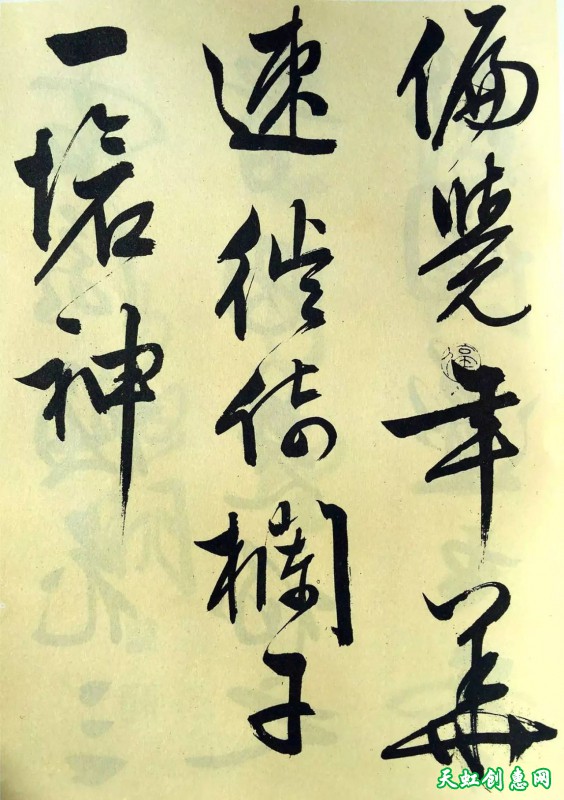 偏覺年華
速徙倚欄干
一愴神
天虹创惠网